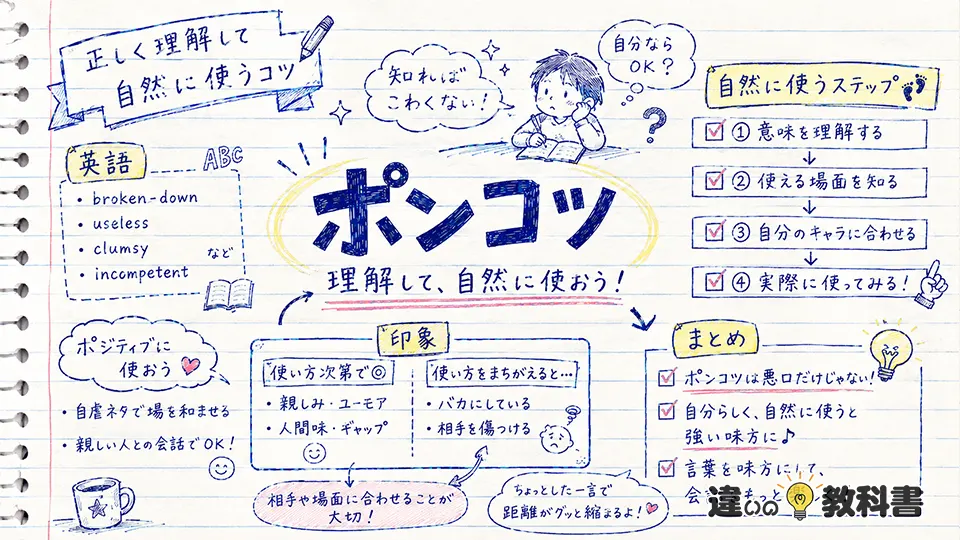 正しく理解して
自然に使うコツ
知れば
こわくない！
自分なら
OK？
?
自然に使うステップ
① 意味を理解する
② 使える場面を知る
③ 自分のキャラに合わせる
④ 実際に使ってみる！
英語
ABC
• broken-down
• useless
• clumsy
• incompetent
など
ポンコツ
理解して、自然に使おう！
ポジティブに
使おう
• 自虐ネタで場を和ませる
• 親しい人との会話でOK！
印象
使い方次第で◎
• 親しみ・ユーモア
• 人間味・ギャップ
使い方をまちがえると…
• バカにしている
• 相手を傷つける
相手や場面に合わせることが
大切！
ちょっとした一言で
距離がグッと縮まるよ！
まとめ
ポンコツは悪口だけじゃない！
自分らしく、自然に使うと
強い味方に♪
言葉を味方にして、
会
もっと
違いの教科書